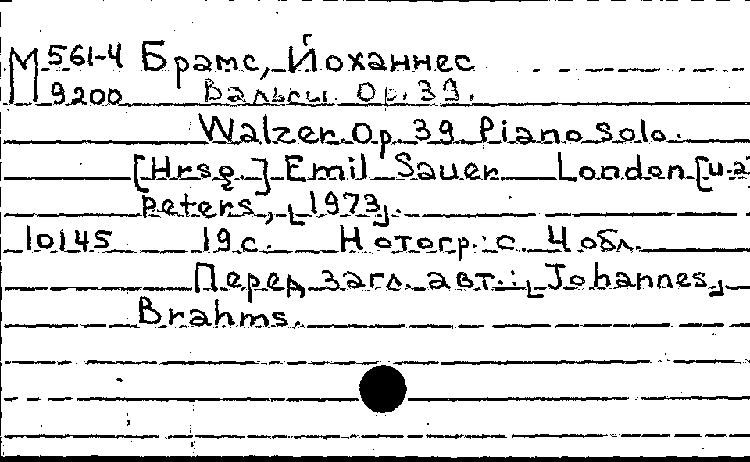 М 561-4 Брамс, Йоханнес
9200 Вальсы. Ор. 39.
Walzer. Op. 39. Piano Solo.
[Hrsg.] Emil Sauer. London [u.a
Peters, [1973].
10145 19 с. Нотогр.: с. 4 обл.
Перед загл. авт.: [Johannes]
Brahms.